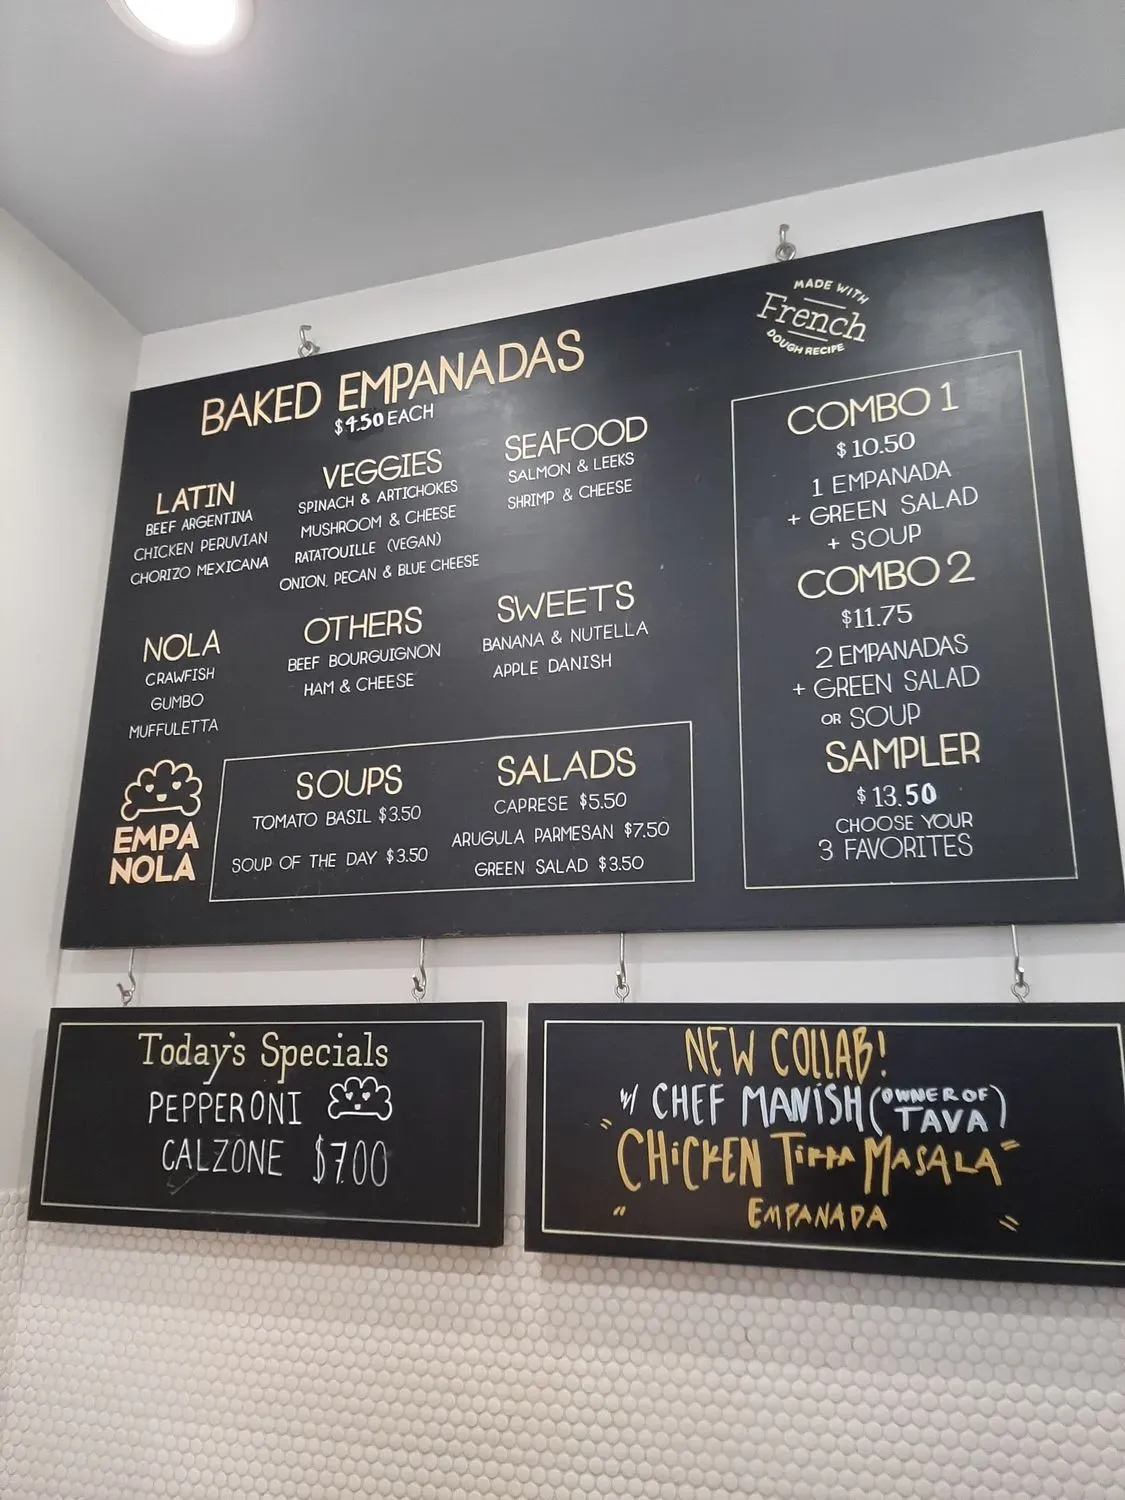 MADE WITH
French
DOUGH RECIPE
BAKED EMPANADAS
$4.50 EACH
LATIN
BEEF ARGENTINA
CHICKEN PERUVIAN
CHORIZO MEXICANA
VEGGIES
SPINACH & ARTICHOKES
MUSHROOM & CHEESE
RATATOUILLE (VEGAN)
ONION, PECAN & BLUE CHEESE
SEAFOOD
SALMON & LEEKS
SHRIMP & CHEESE
NOLA
CRAWFISH
GUMBO
MUFFULETTA
OTHERS
BEEF BOURGUIGNON
HAM & CHEESE
SWEETS
BANANA & NUTELLA
APPLE DANISH
EMPA
NOLA
SOUPS
TOMATO BASIL $3.50
SOUP OF THE DAY $3.50
SALADS
CAPRESE $5.50
ARUGULA PARMESAN $7.50
GREEN SALAD $3.50
COMBO 1
$10.50
1 EMPANADA
+ GREEN SALAD
+ SOUP
COMBO 2
$11.75
2 EMPANADAS
+ GREEN SALAD
OR SOUP
SAMPLER
$13.50
CHOOSE YOUR
3 FAVORITES
Today's Specials
PEPPERONI
CALZONE $7.00
NEW COLLAB!
W/ CHEF MANISH (OWNER OF TAVA)
"CHICKEN TIKKA MASALA"
" EMPANADA "